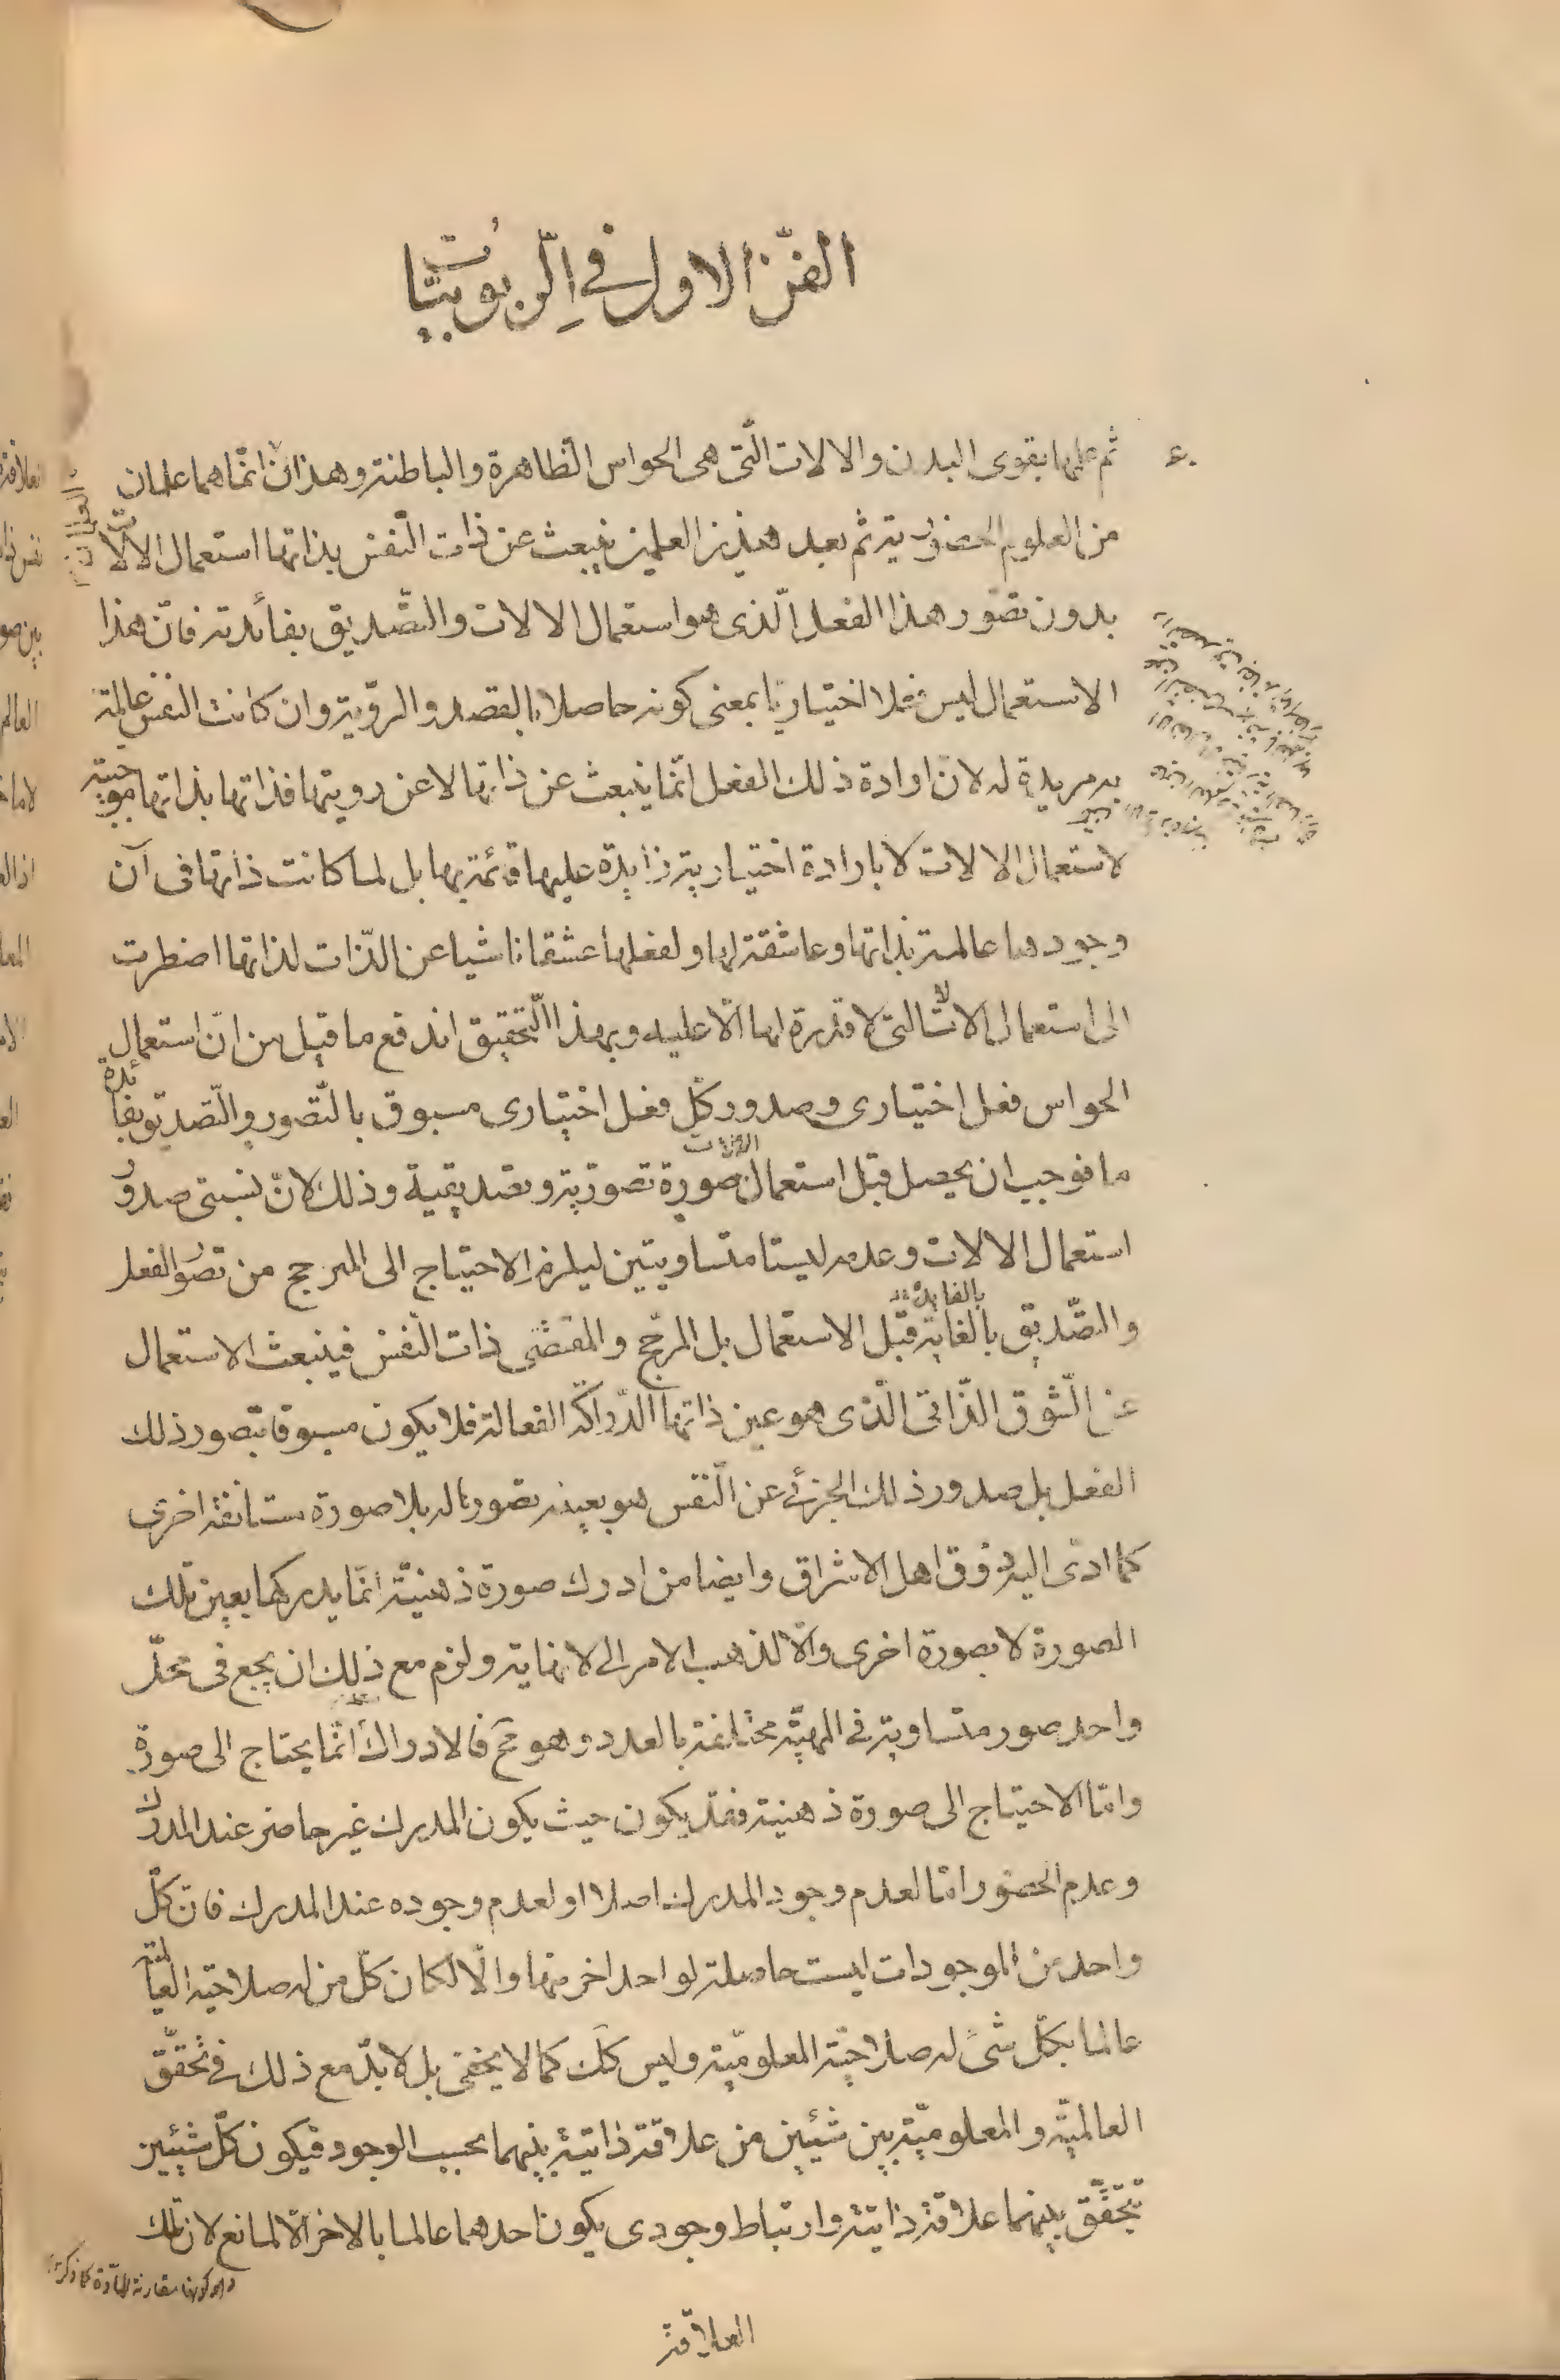 الفنّ الاول في الرّبوبيّات
ثم علمها بقوى البدن والالات الّتى هى الحواس الظاهرة والباطنة وهذان انّما هما علمان
من العلوم الحضورية ثم بعد هذين العلمين ينبعث عن ذات النّفس بذاتها استعمال الالات
العلمان
بدون تصوّر هذا الفعل الّذى هو استعمال الالات والتّصديق بفائدته فانّ هذا
الاستعمال ليس فعلا اختياريّا بمعنى كونه حاصلا بالقصد والرويّة وان كانت النفس عالمة
به مريدة له لان ارادة ذلك الفعل انّما ينبعث عن ذاتها لا عن رويتها فذاتها بذاتها موجبة
لاستعمال الالات لا بارادة اختيارية زايدة عليها قائمة بها بل لما كانت ذاتها فى آن
وجودها عالمة بذاتها وعاشقة لها ولفعلها عشقا ناشيا عن الذّات لذاتها اضطرت
الى استعمال الالات التى لا قدرة لها الّا عليه وبهذا التّحقيق اندفع ما قيل من انّ استعمال
الحواس فعل اختيارى وصدور كلّ فعل اختيارى مسبوق بالتّصور والتّصديق بفائدة
ما فوجب ان يحصل قبل استعمال الالات صورة تصورية وتصديقية وذلك لانّ نسبتى صدور
استعمال الالات وعدمه ليستا متساويتين ليلزم الاحتياج الى المرجح من تصور الفعل
والتصّديق بالغاية بالفايدة قبل الاستعمال بل المرجّح والمقتضى ذات النّفس فينبعث الاستعمال
عن الشّوق الذّاتى الّذى هو عين ذاتها الدّراكة الفعالة فلا يكون مسبوقا بتصور ذلك
الفعل بل صدور ذلك الجزئى عن النّفس هو بعينه تصورها له بلا صورة مستانفة اخرى
كما ادى اليه ذوق اهل الاشراق وايضا من ادرك صورة ذهنيّة انّما يدركها بعين تلك
الصورة لا بصورة اخرى والّا لذهب الامر الى لا نهاية ولزم مع ذلك ان يجمع فى محلّ
واحد صور متساوية فى المهيّة مختلفة بالعدد وهو مح فالادراك انّما يحتاج الى صورة
وامّا الاحتياج الى صورة ذهنية فقد يكون حيث يكون المدرك غير حاضر عند المدرك
وعدم الحضور امّا لعدم وجود المدرك اصلا او لعدم وجوده عند المدرك فانّ كلّ
واحد من الموجودات ليست حاصلة لواحد اخر منها والّا لكان كلّ من له صلاحية العالمية
عالما بكلّ شىء له صلاحيّة المعلوميّة وليس كلّك كما لا يخفى بل لا بدّ مع ذلك فى تحقّق
العالميّة والمعلوميّة بين شيئين من علاقة ذاتيّة بينهما بحسب الوجود فيكون كلّ شيئين
تحقّق بينهما علاقة ذاتيّة وارتباط وجودى يكون احدهما عالما بالاخر الّا لمانع لان تلك
وهو كونها مقارنة للمادّة كما ذكره
العلاقة